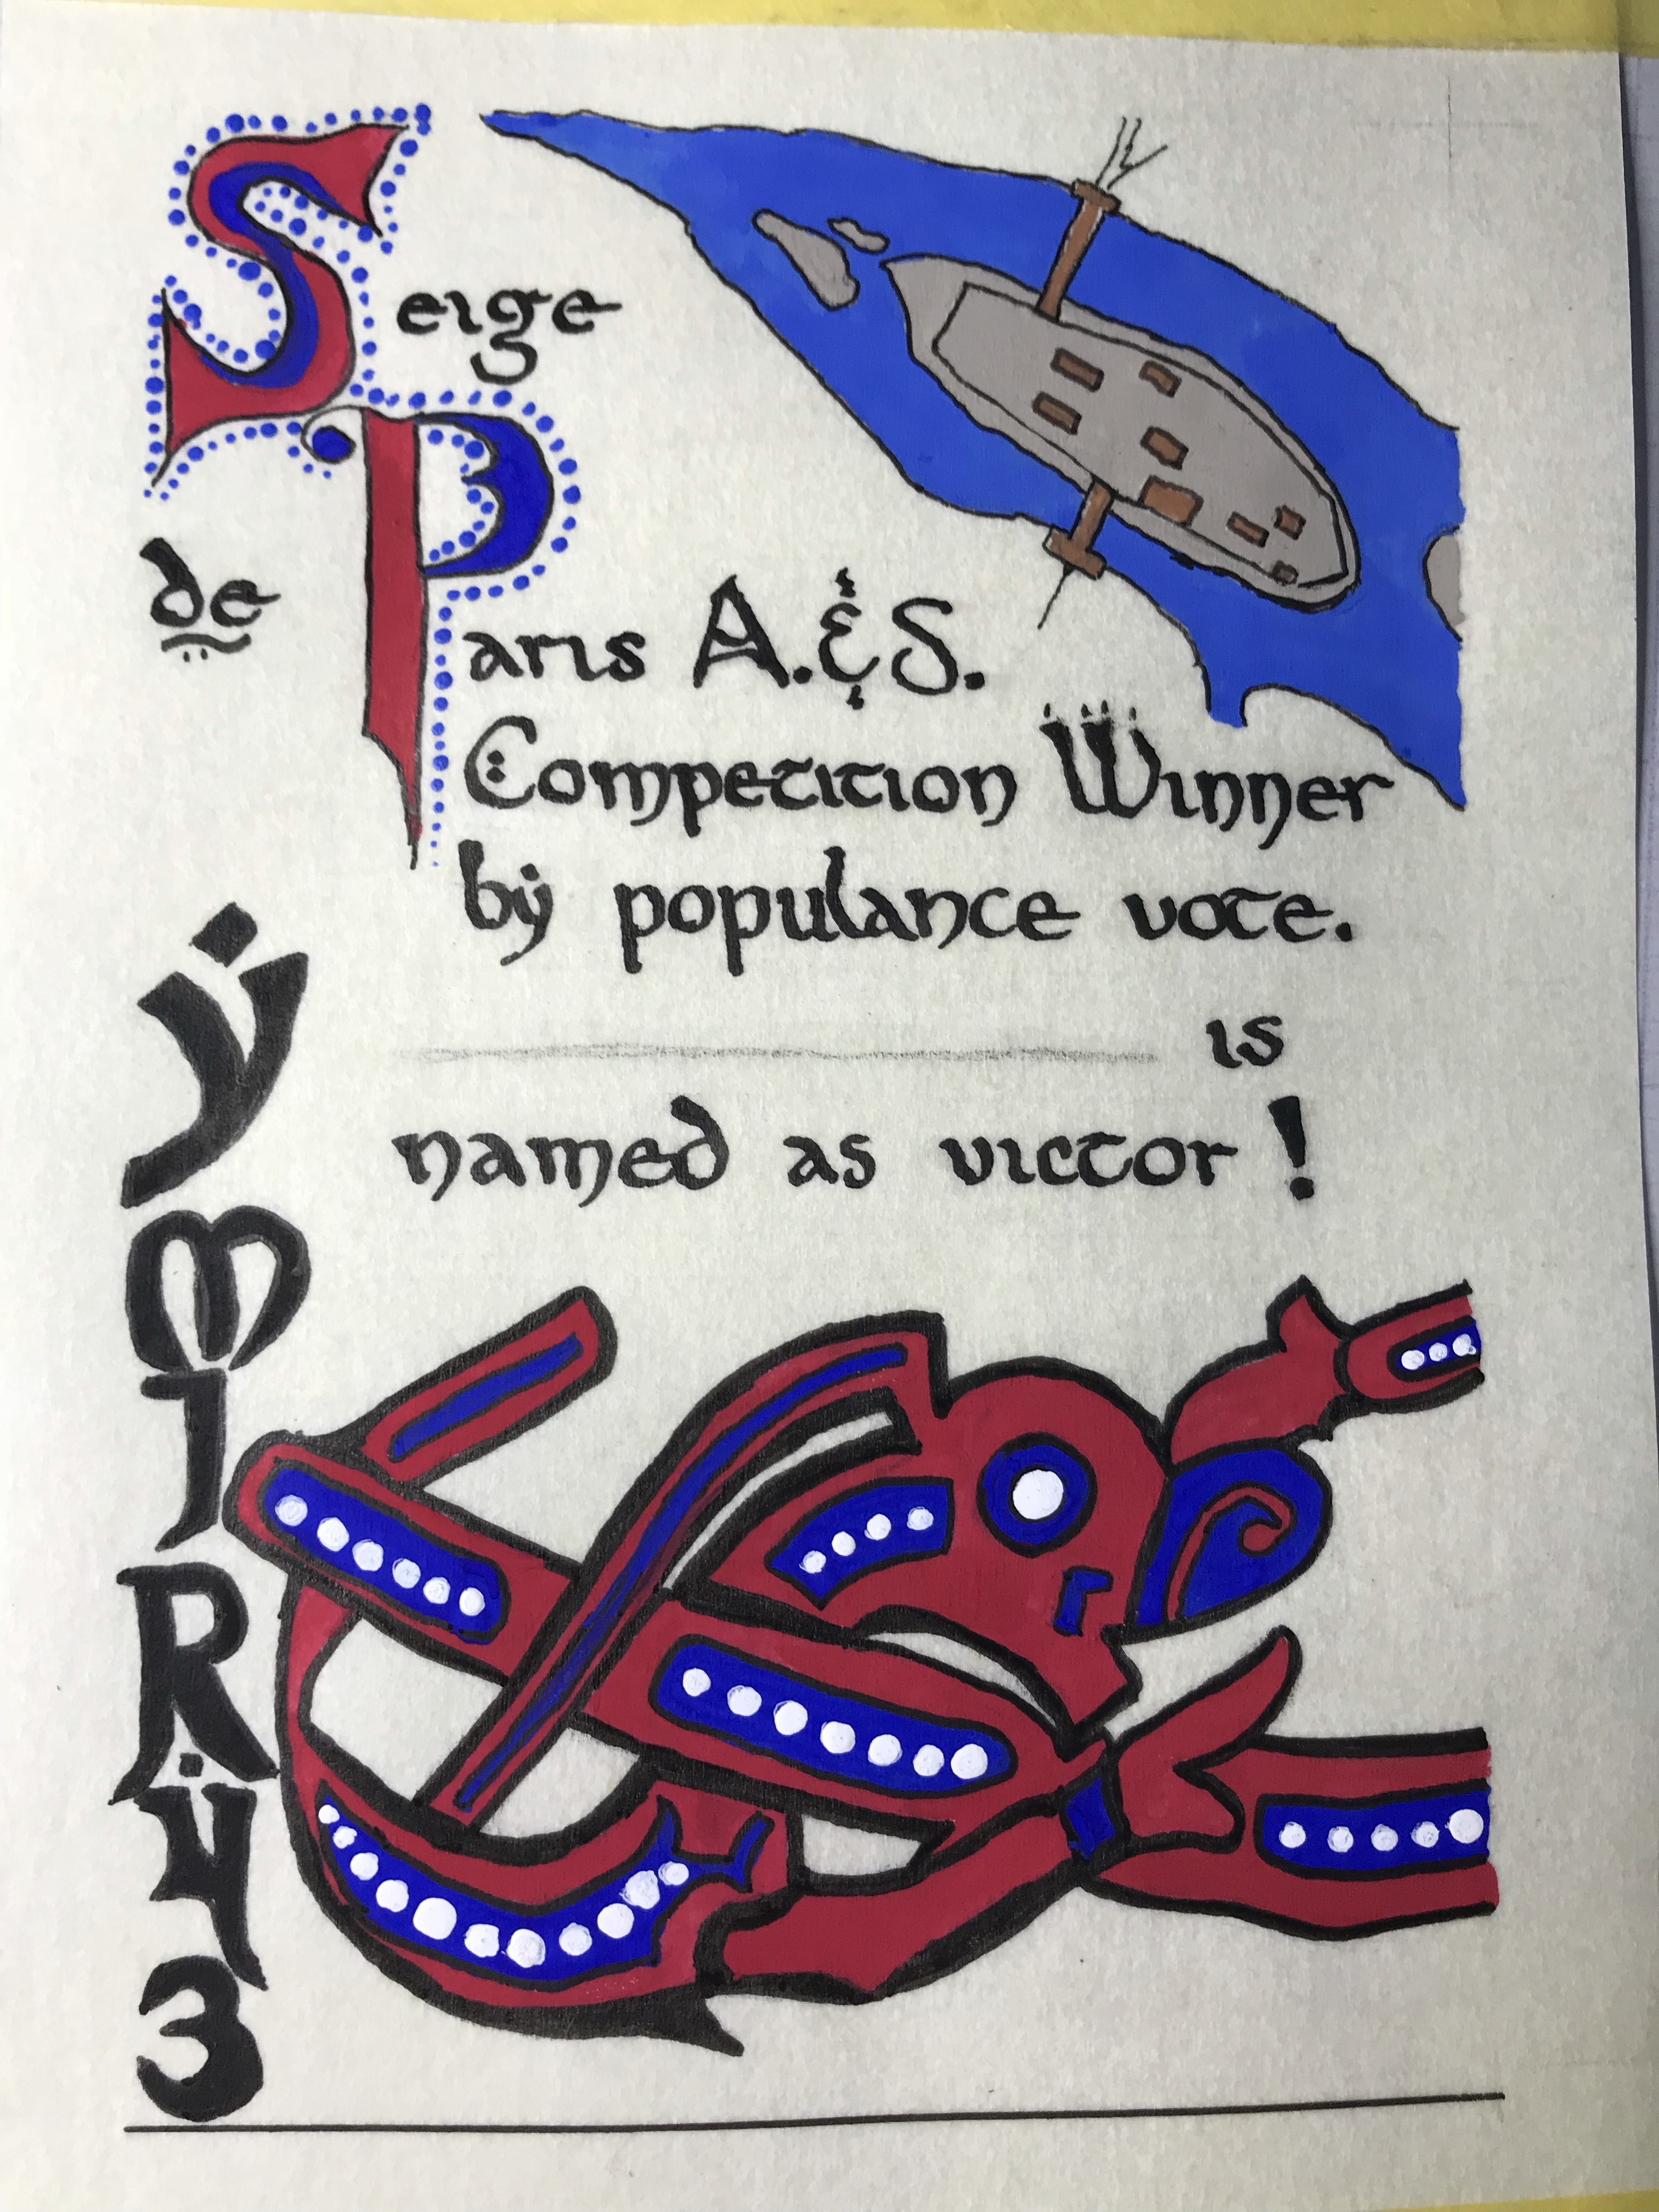 Seige
de Paris A.&S.
Competition Winner
bẏ populance vote.
is
named as victor!
ẎmIRẏ3